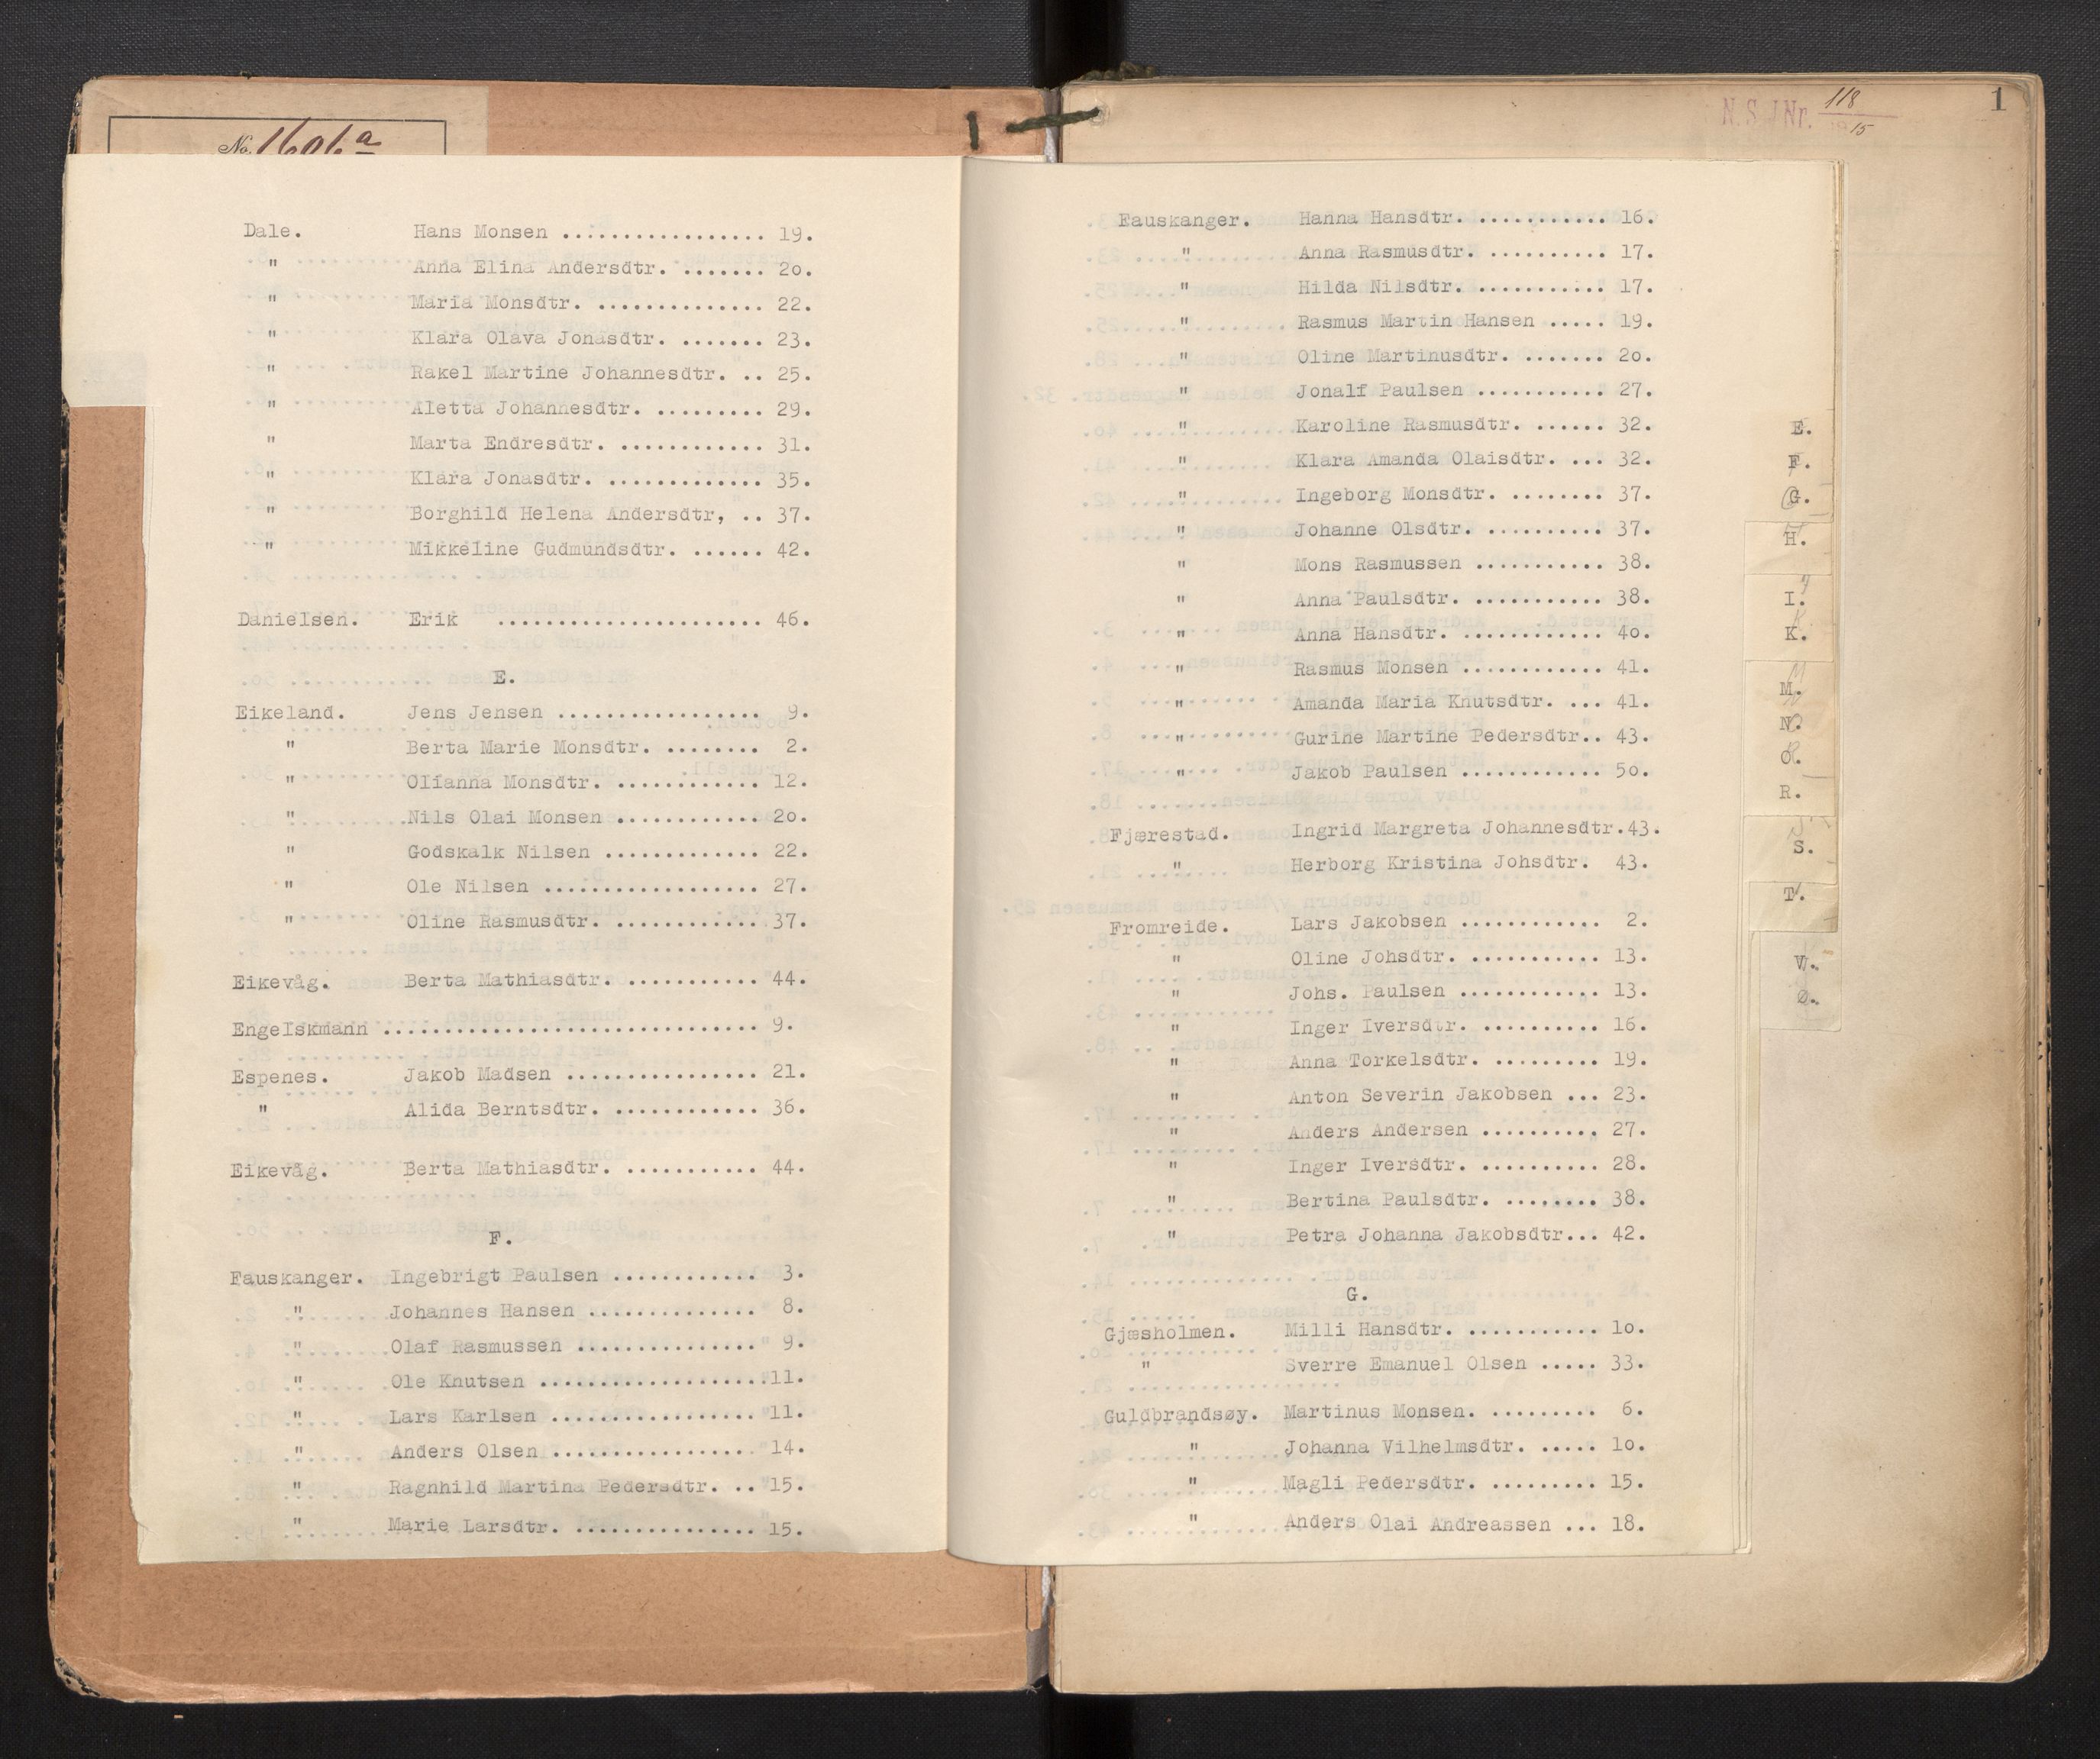 No. 1606a
Dale. Hans Monsen ................. 19.
" Anna Elina Andersdtr. ....... 2o.
" Maria Monsdtr. .............. 22.
" Klara Olava Jonasdtr. ....... 23.
" Rakel Martine Johannesdtr. .. 25.
" Aletta Johannesdtr. ......... 29.
" Marta Endresdtr. ............ 31.
" Klara Jonasdtr. ............. 35.
" Borghild Helena Andersdtr, .. 37.
" Mikkeline Gudmundsdtr. ...... 42.
Danielsen. Erik ...................... 46.
E.
Eikeland. Jens Jensen ................. 9.
" Berta Marie Monsdtr. ........ 2.
" Olianna Monsdtr. ............ 12.
" Nils Olai Monsen ............ 2o.
" Godskalk Nilsen ............. 22.
" Ole Nilsen .................. 27.
" Oline Rasmusdtr. ............ 37.
Eikevåg. Berta Mathiasdtr. ........... 44.
Engelskmann ............................... 9.
Espenes. Jakob Madsen ................ 21.
" Alida Berntsdtr. ............ 36.
Eikevåg. Berta Mathiasdtr. ........... 44.
F.
Fauskanger. Ingebrigt Paulsen ............ 3.
" Johannes Hansen .............. 8.
" Olaf Rasmussen ............... 9.
" Ole Knutsen ...................11.
" Lars Karlsen ................. 11.
" Anders Olsen ................. 14.
" Ragnhild Martina Pedersdtr. .. 15.
" Marie Larsdtr. ............... 15.
N.S JNr. 118
15
1
Fauskanger. Hanna Hansdtr. ........... 16.
" Anna Rasmusdtr. .......... 17.
" Hilda Nilsdtr. ........... 17.
" Rasmus Martin Hansen ..... 19.
" Oline Martinusdtr. ....... 2o.
" Jonalf Paulsen ........... 27.
" Karoline Rasmusdtr. ...... 32.
" Klara Amanda Olaisdtr. ... 32.
" Ingeborg Monsdtr. ........ 37.
" Johanne Olsdtr. .......... 37.
" Mons Rasmussen ........... 38.
" Anna Paulsdtr. ........... 38.
" Anna Hansdtr. ............ 4o.
" Rasmus Monsen ............ 41.
" Amanda Maria Knutsdtr. ... 41.
" Gurine Martine Pedersdtr.. 43.
" Jakob Paulsen ............ 5o.
Fjærestad. Ingrid Margreta Johannesdtr.43.
" Herborg Kristina Johsdtr. 43.
Fromreide. Lars Jakobsen ............ 2.
" Oline Johsdtr. ........... 13.
" Johs. Paulsen ............ 13.
" Inger Iversdtr. .......... 16.
" Anna Torkelsdtr. ......... 19.
" Anton Severin Jakobsen ... 23.
" Anders Andersen .......... 27.
" Inger Iversdtr. .......... 28.
" Bertina Paulsdtr. ........ 38.
" Petra Johanna Jakobsdtr... 42.
G.
Gjæsholmen. Milli Hansdtr. ........... 1o.
" Sverre Emanuel Olsen ..... 33.
Guldbrandsøy. Martinus Monsen. ......... 6.
" Johanna Vilhelmsdtr. ..... 1o.
" Magli Pedersdtr. ......... 15.
" Anders Olai Andreassen ... 18.
E.
F.
G.
H.
I.
K.
M.
N.
O.
R.
S.
T.
V.
Ø.